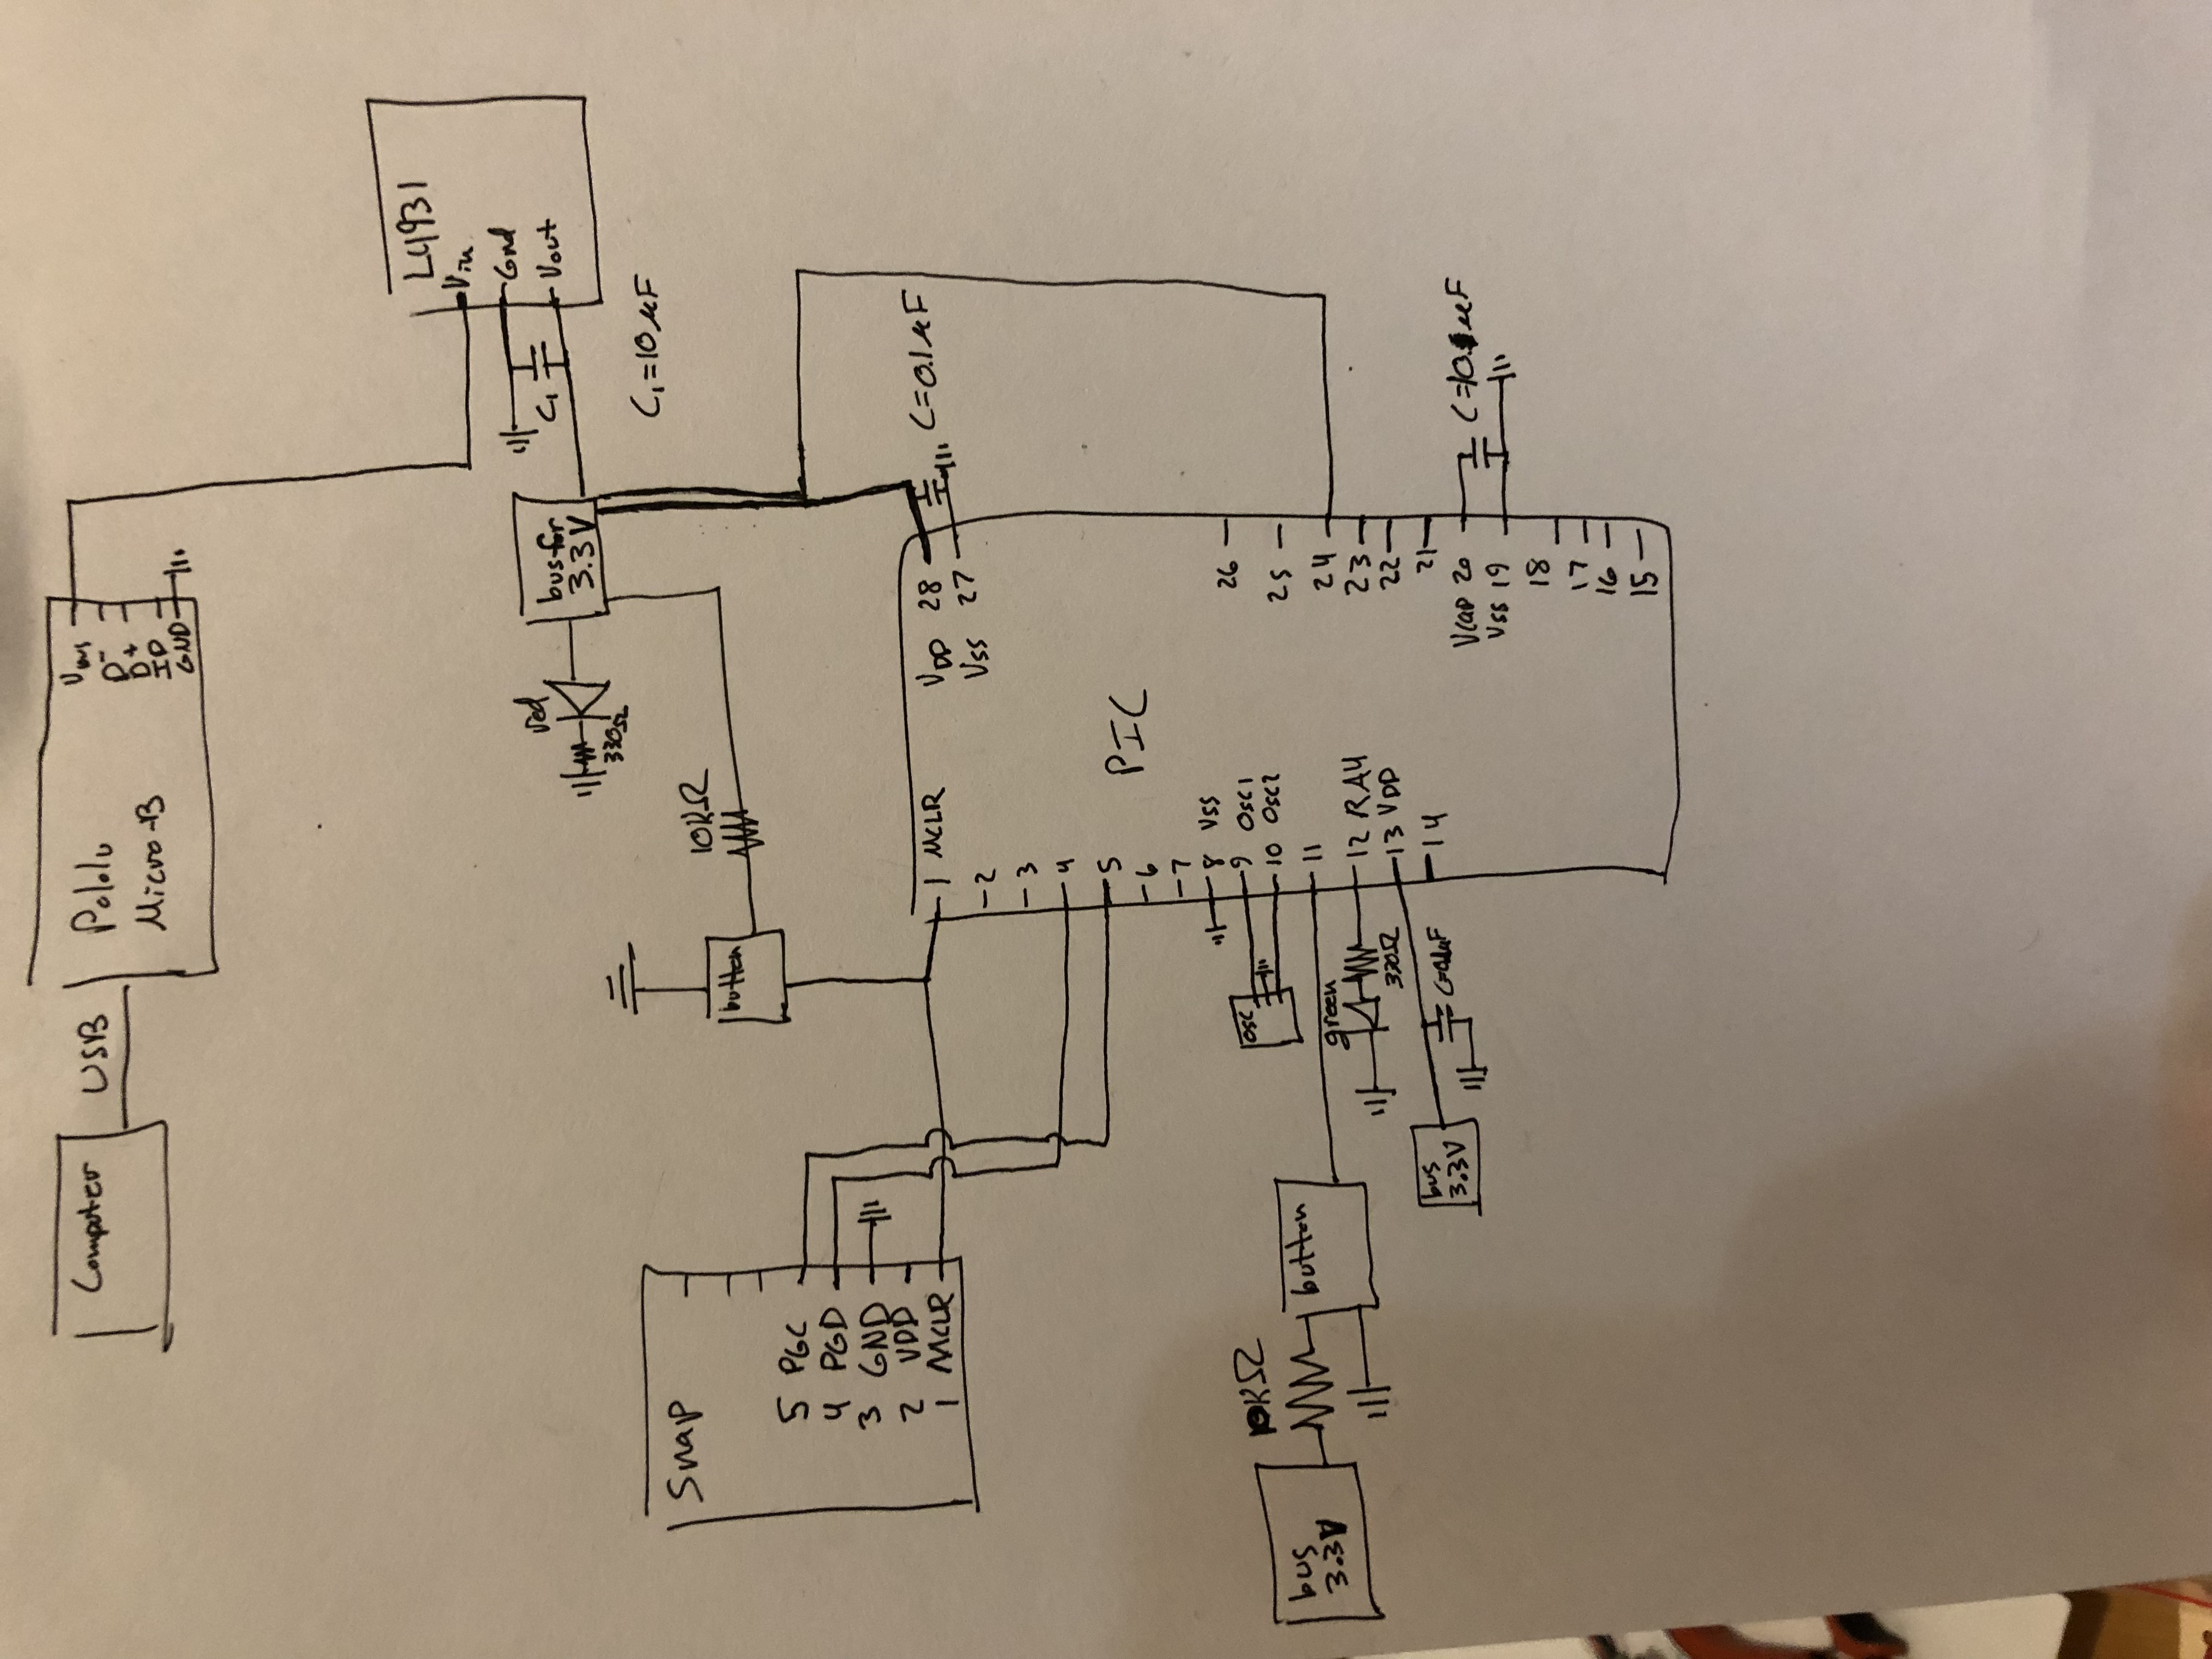 Computer
USB
Pololu
Micro-B
Vbus
D-
D+
ID
GND
L4931
Vin
Gnd
Vout
C1
C1=10 µF
red
330Ω
bus for
3.3V
10KΩ
button
Snap
5 PGC
4 PGD
3 GND
2 VDD
1 MCLR
1 MCLR
2
3
4
5
6
7
8 VSS
9 OSC1
10 OSC2
11
12 RA4
13 VDD
14
PIC
VDD 28
VSS 27
C=0.1µF
26
25
24
23
22
21
Vcap 20
VSS 19
18
17
16
15
C=10µF
OSC
bus
3.3V
10KΩ
button
green
330Ω
bus
3.3V
C=0.1µF